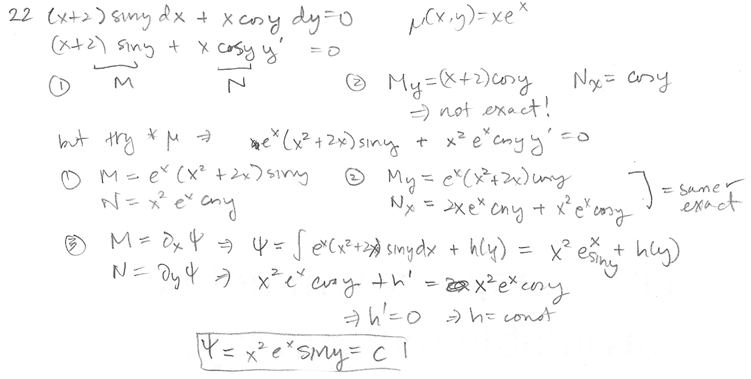 22 (x+2) siny dx + x cosy dy=0 μ(x,y)=xe^x
(x+2) siny + x cosy y' =0
① M N ② My=(x+2)cosy Nx= cosy
⇒ not exact!
but try * μ ⇒ e^x(x²+2x)siny + x²e^x cosy y'=0
① M = e^x(x²+2x)siny ② My = e^x(x²+2x)cosy
N = x²e^x cosy Nx = 2xe^x cosy + x²e^x cosy ] = same exact
③ M = ∂xΨ ⇒ Ψ = ∫e^x(x²+2x)siny dx + h(y) = x²e^x siny + h(y)
N = ∂yΨ ⇒ x²e^x cosy + h' = x²e^x cosy
⇒ h'=0 ⇒ h= const
Ψ = x²e^x siny = c